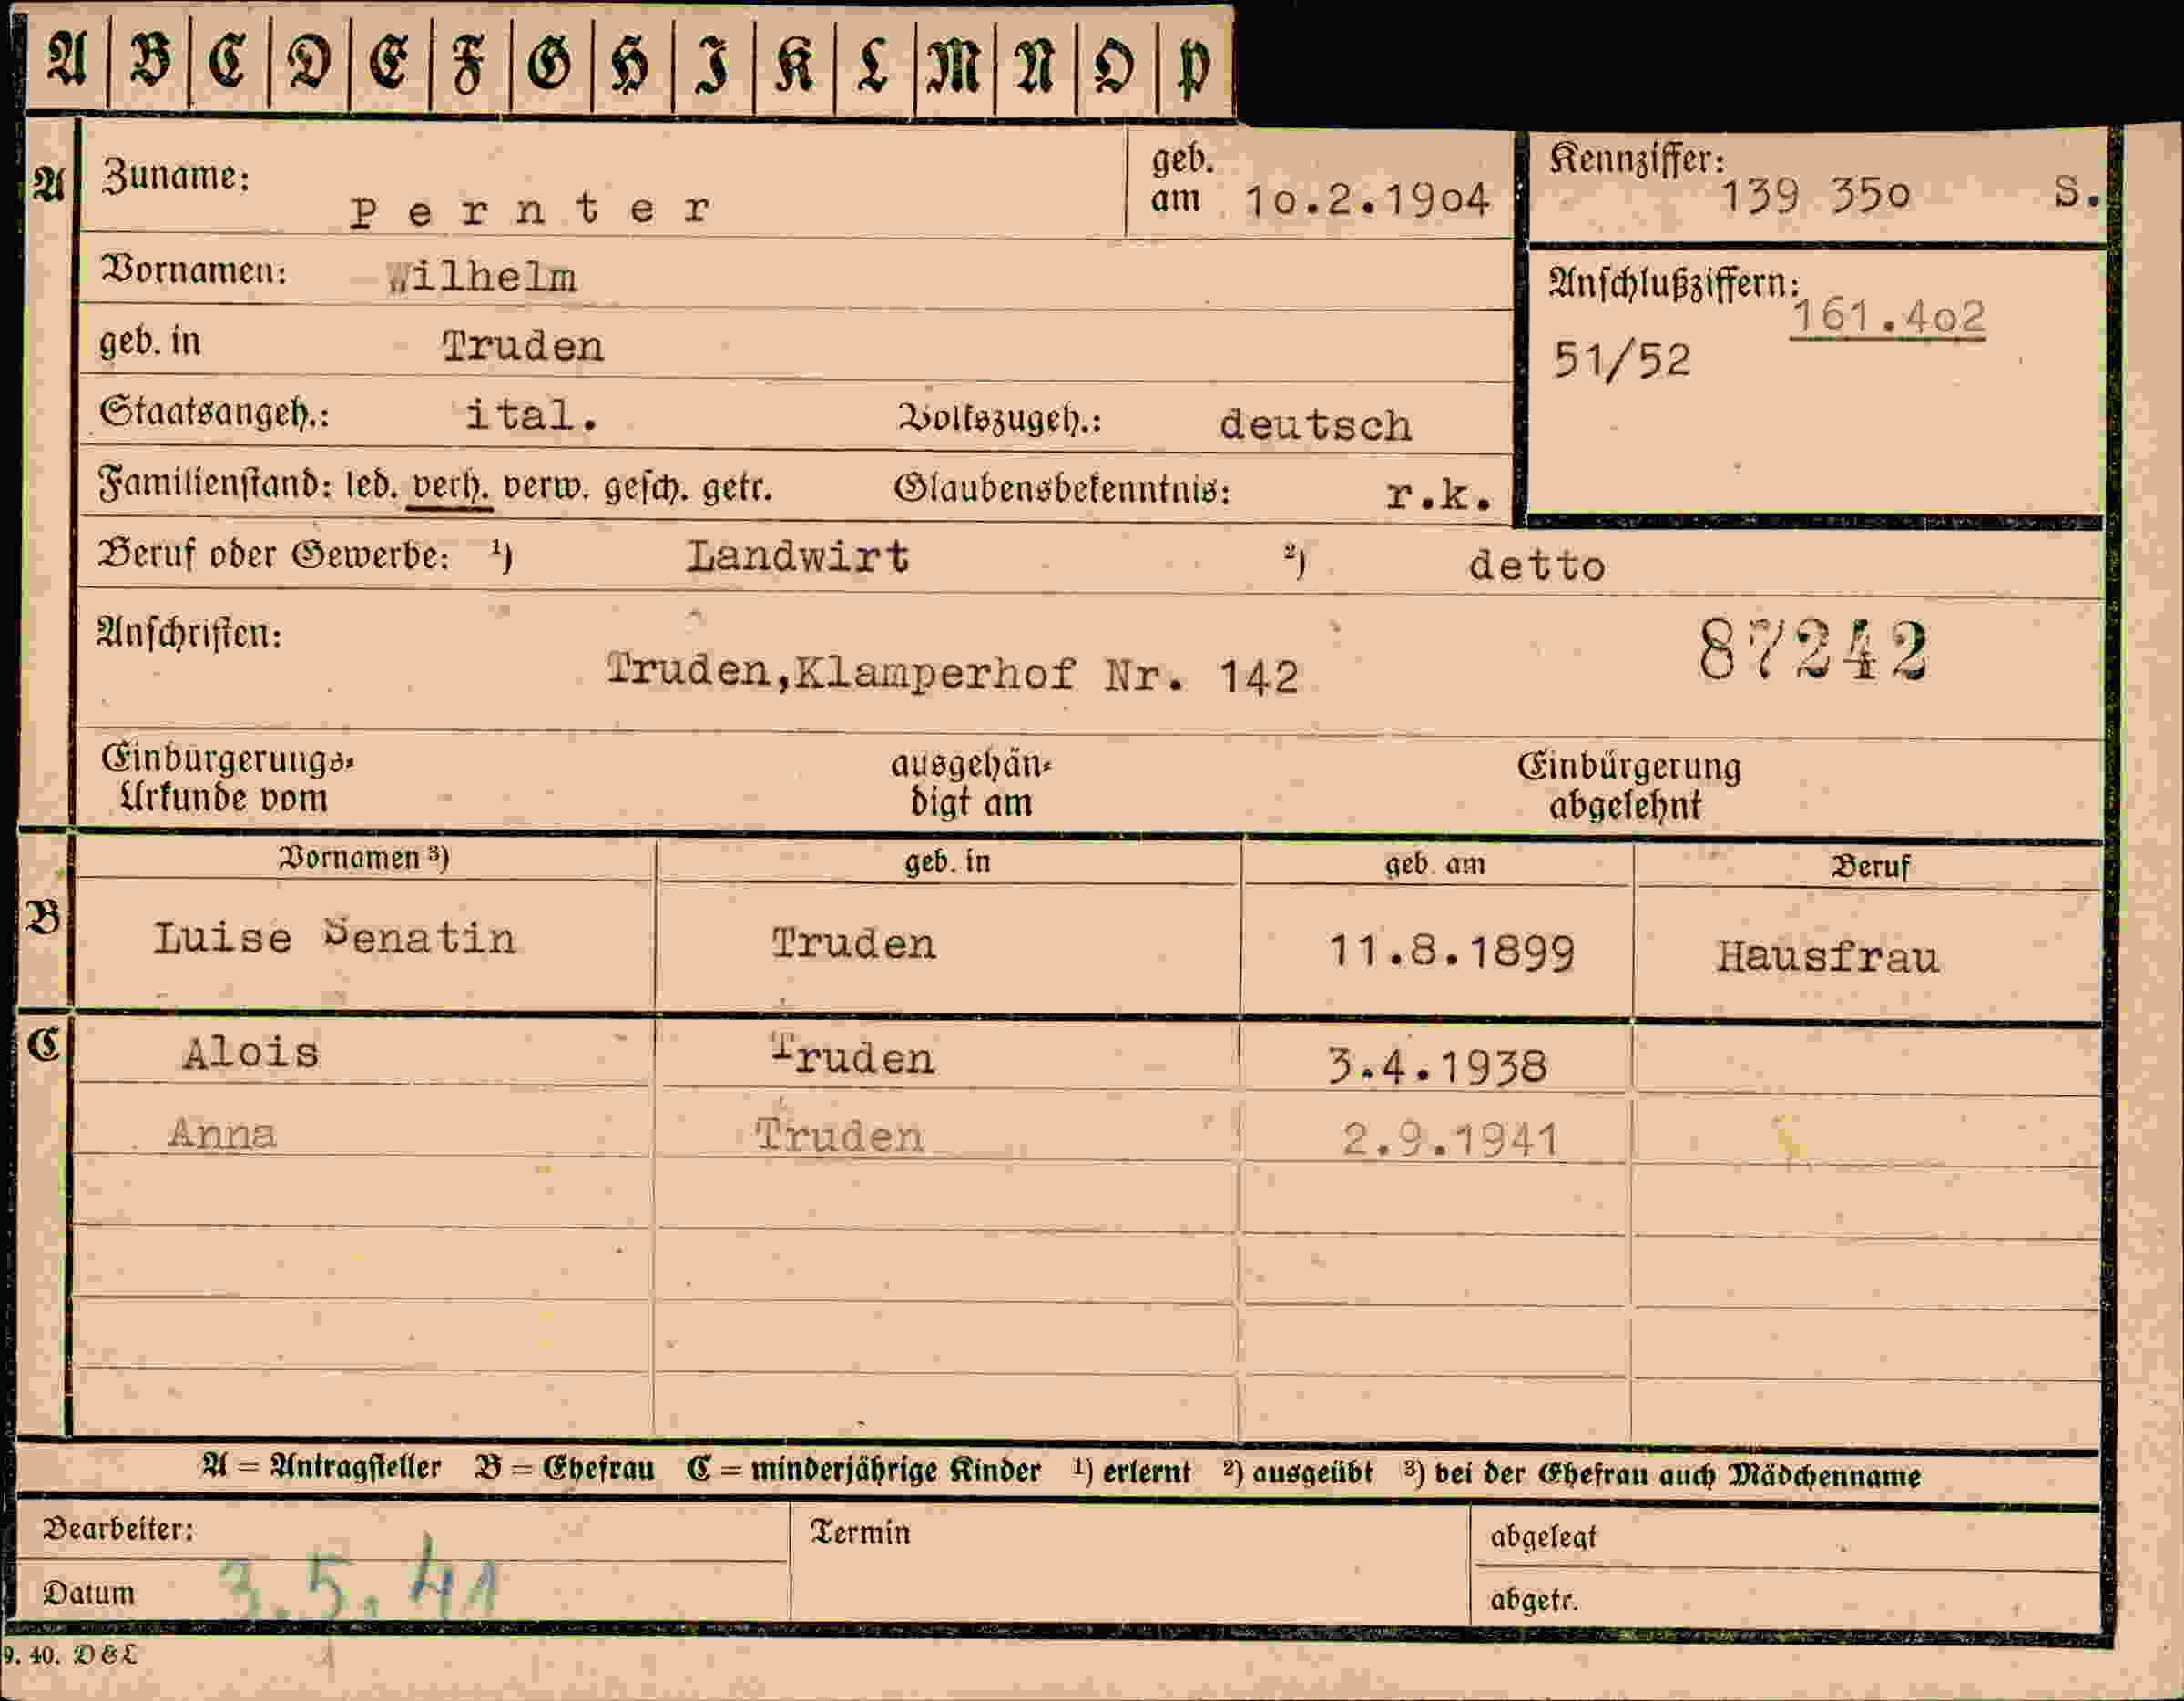 A B C D E F G H I K L M N O P
A Zuname: Pernter geb. am 10.2.1904 Kennziffer: 139 350 S.
Vornamen: Wilhelm Anschlußziffern: 161.402
geb. in Truden 51/52
Staatsangeh.: ital. Volkszugeh.: deutsch
Familienstand: led. verh. verw. gesch. getr. Glaubensbekenntnis: r.k.
Beruf oder Gewerbe: 1) Landwirt 2) detto
Anschriften: Truden,Klamperhof Nr. 142 87242
Einbürgerungs-Urkunde vom ausgehändigt am Einbürgerung abgelehnt
Vornamen 3) geb. in geb. am Beruf
B Luise Senatin Truden 11.8.1899 Hausfrau
C Alois Truden 3.4.1938
Anna Truden 2.9.1941
A = Antragsteller B = Ehefrau C = minderjährige Kinder 1) erlernt 2) ausgeübt 3) bei der Ehefrau auch Mädchenname
Bearbeiter: Termin abgelegt
Datum 3.5.41 abgetr.
9. 40. D & L